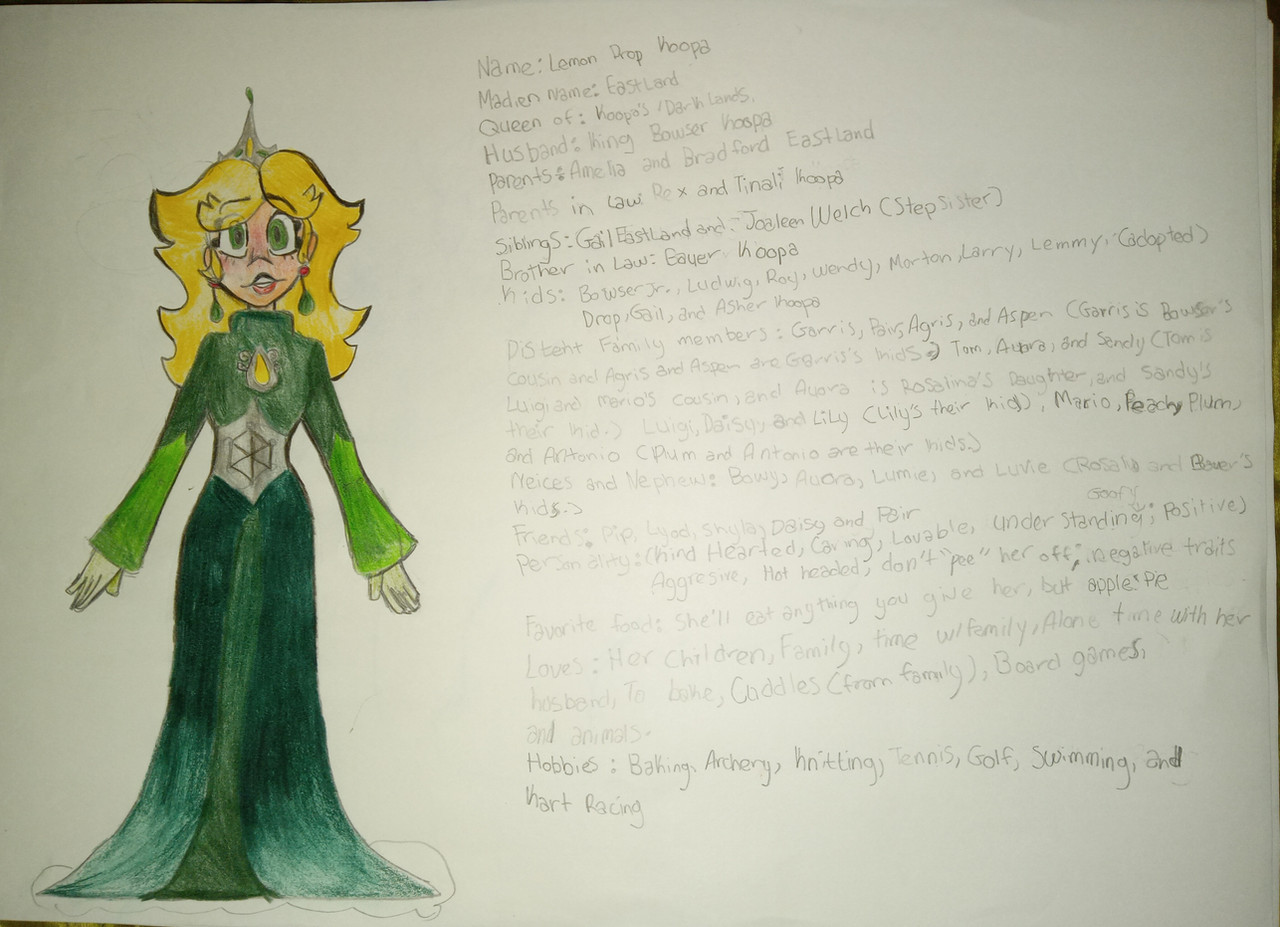 Name: Lemon Drop Koopa
Madien Name: Eastland
Queen of: Koopa's /Dark Lands.
Husband: King Bowser Koopa
Parents: Amelia and Bradford Eastland
Parents in Law Rex and Tinali Koopa
Siblings: Gail Eastland and: Joaleen Welch (Step Sister)
Brother in Law: Koopa
Kids: Bowser Jr., Ludwig, Roy, Wendy, Morton, Larry, Lemmy, (adopted)
Drop, Gail, and Asher Koopa
Disteht Family members: Garris, Agris, and Aspen (Garris is Bowser's
Cousin and Agris and Aspen are Garris's kids.) Tom, Auora, and Sandy (Tom is
Luigi and Mario's cousin, and Auora is Rosalina's Daughter, and Sandy's
their kid.) Luigi, Daisy, and Lily (Lily's their kid), Mario, Peach, Plum,
and Antonio (Plum and Antonio are their kids.)
Neices and Nephew: Bowy, Auora, Lumie, and Luvie (Rosali and
kids.)
Goofy
Friends: Pip, Lyod, Shyla, Daisy and Pair
Personality: (Kind Hearted, Caring, Lovable, Under Standing; Positive)
Aggresive, Hot headed, don't "pee" her off; negative traits
Favorite food: She'll eat anything you give her, but apple pie
Loves: Her Children, Family, time w/family, Alone time with her
husband, To bake, Cuddles (from family), Board games,
and animals.
Hobbies: Baking, Archery, Knitting, Tennis, Golf, Swimming, and
Kart Racing